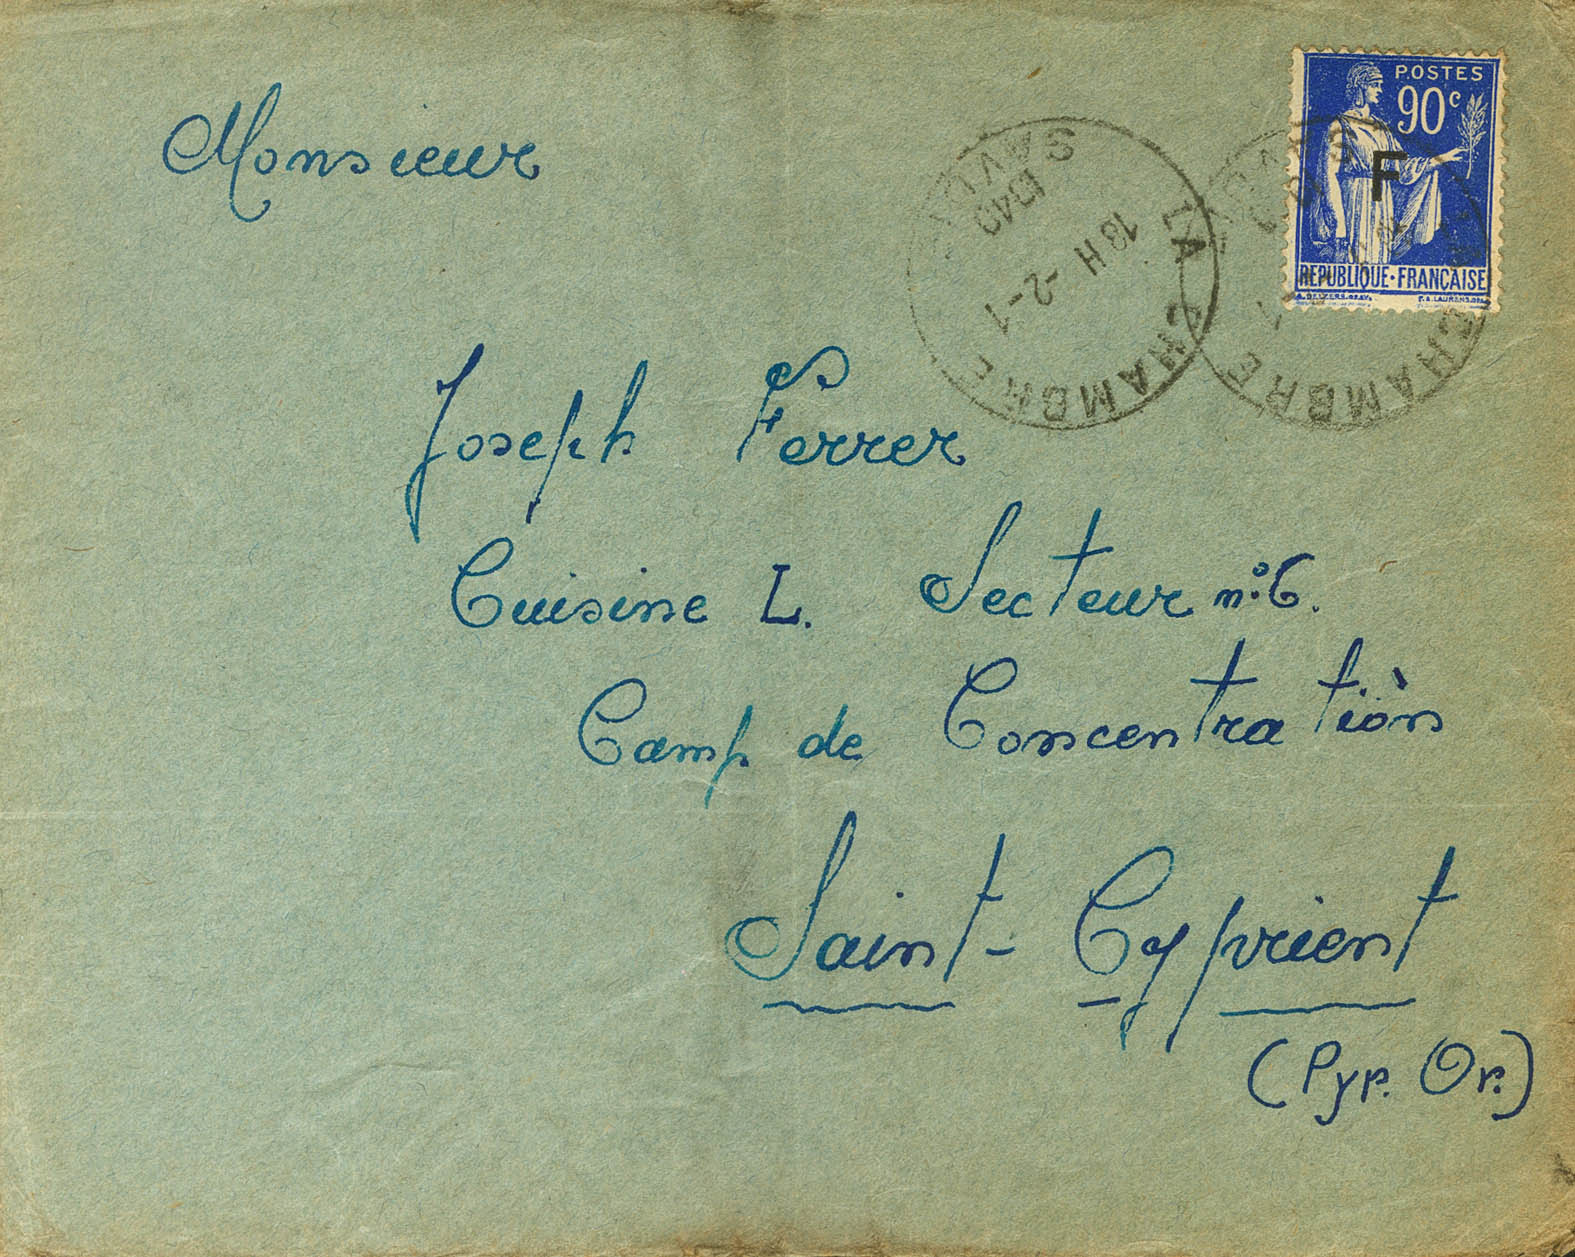 POSTES
90c
F
REPUBLIQUE·FRANÇAISE
LA CHAMBRE
18 H -2-1
1940
SAVOIE
CHAMBRE
Monsieur
Joseph Ferrer
Cuisine L. Secteur nº6.
Camp de Concentratiòn
Saint-Cyprient
(Pyr. Or.)